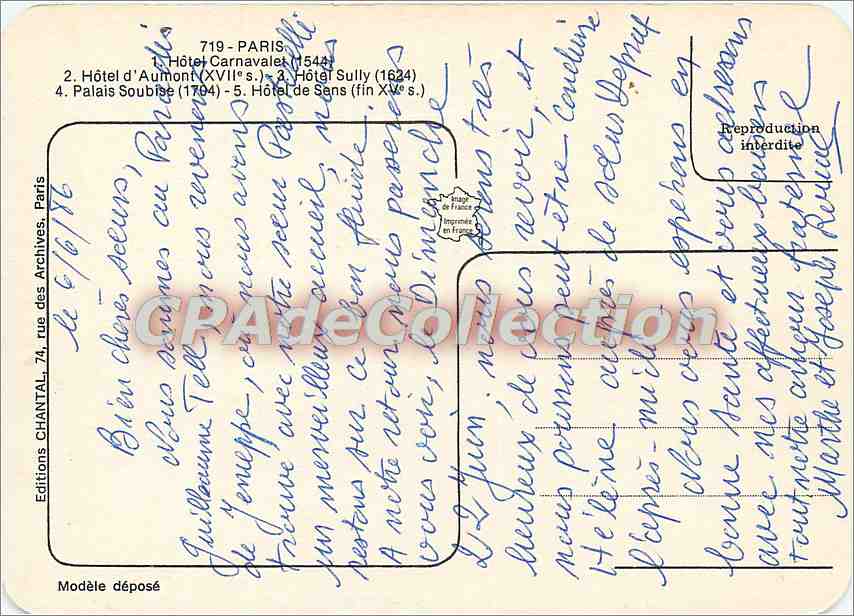 719 - PARIS
1. Hôtel Carnavalet (1544)
2. Hôtel d'Aumont (XVIIe s.) - 3. Hôtel Sully (1624)
4. Palais Soubise (1794) - 5. Hôtel de Sens (fin XVe s.)
Reproduction
interdite
Image
de France
Imprimée
en France
Editions CHANTAL, 74, rue des Archives, Paris
Modèle déposé
CPAdeCollection
le 6/6/86
Bien chères sœurs,
Nous sommes au Paradis
Guillaume Tell, nous revenons
de Jemeppe, où nous avons
trouvé avec notre sœur
un merveilleux accueil, nous
restons sur ce bon fluide.
A notre retour nous passerons
vous voir, le Dimanche
22 Juin, nous serons très
heureux de vous revoir, et
nous pourrons peut être conduire
Hélène auprès de
l'après-midi.
Nous vous espérons en
bonne santé et vous adressons
avec nos affectueux baisers
tout notre amour fraternel
Marthe et Joseph